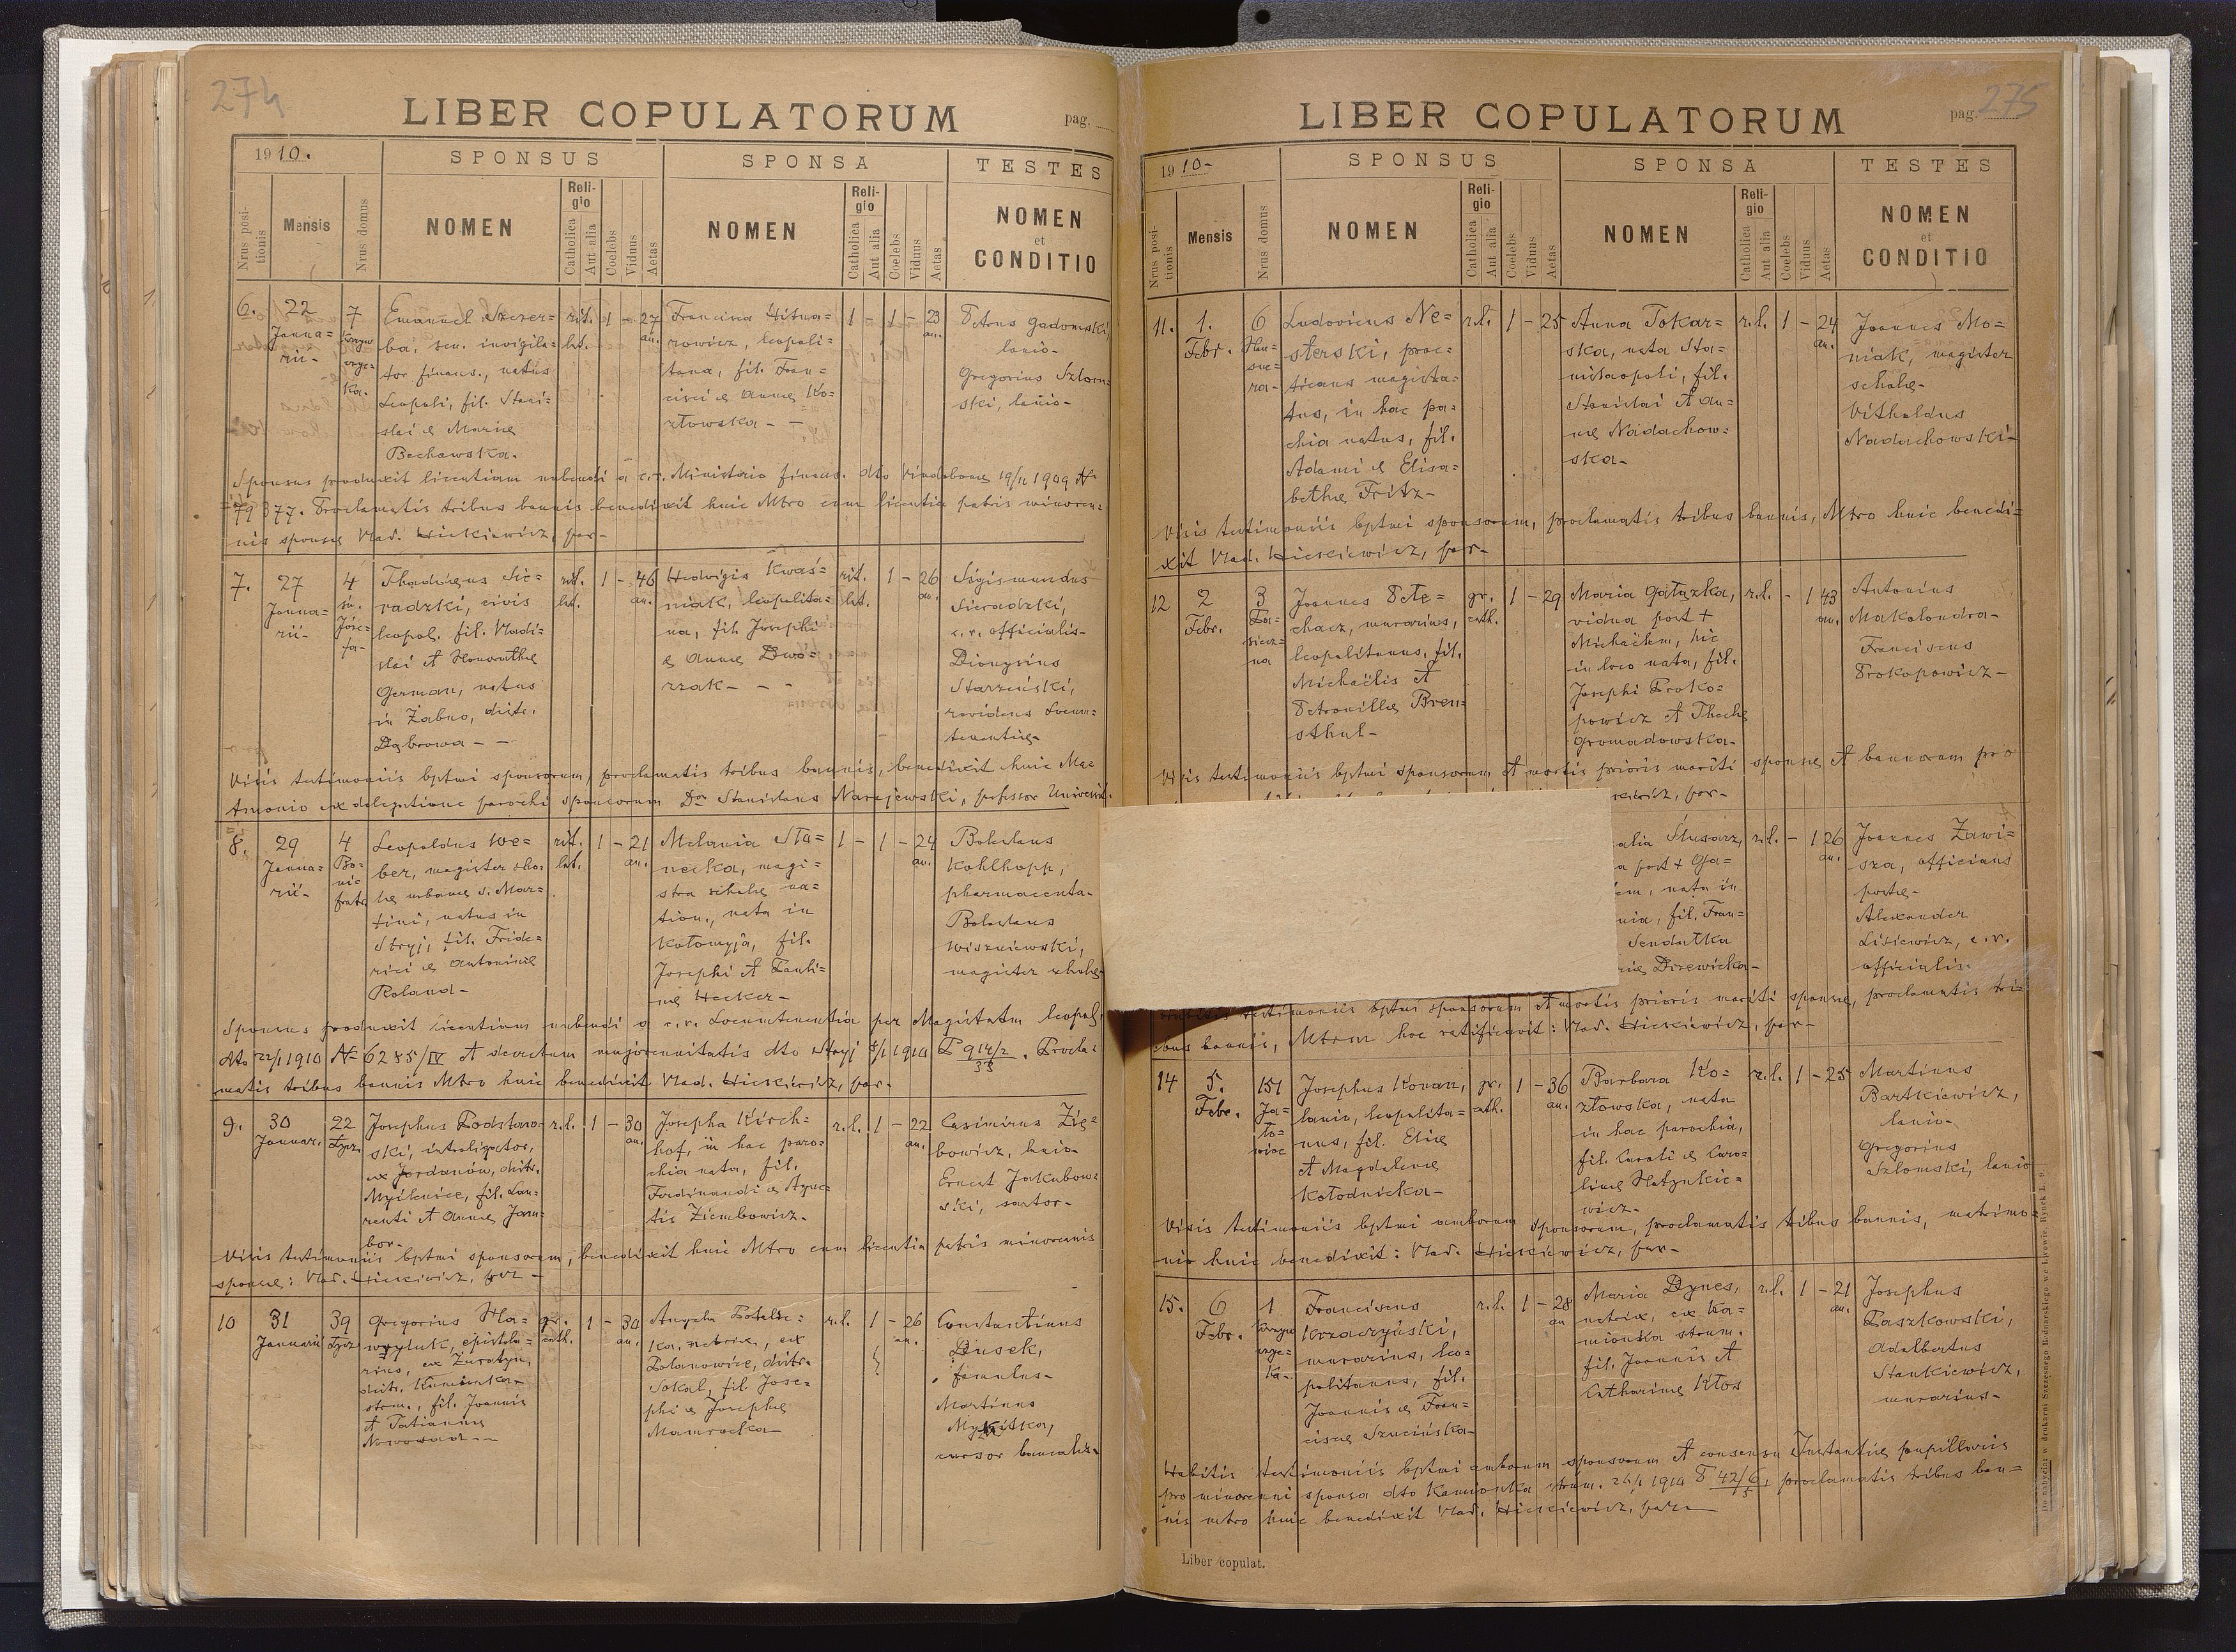 274
LIBER COPULATORUM
pag.
1910.
SPONSUS
SPONSA
TESTES
Nrus positionis
Mensis
Nrus domus
NOMEN
Religio
Catholica
Aut alia
Coelebs
Viduus
Aetas
NOMEN
Religio
Catholica
Aut alia
Coelebs
Viduus
Aetas
NOMEN
et
CONDITIO
6.
22
Janua=
rii-
7
Emanuel Szczer=
ba, sen. invigila=
tor financ., natus
Leopoli, fil. Stani=
slai & Mariæ
Bechowska.
rit.
lat.
1 - 27
an.
Francisca Hitna=
rowicz, leopoli=
tana, fil. Fran=
cisci & Annæ Ko=
złowska - -
1 - 1 - 23
an.
Petrus Gadomski,
lanio-
Gregorius Szlom=
ski, lanio-
Sponsus produxit licentiam nubendi a c.r. Ministerio financ. dto Vindobonæ 19/11 1909 N
79377. Proclamatis tribus bannis benedixit huic Mtro cum licentia patris minoren=
nis sponsæ Vlad. Hickiewicz, par-
7.
27
Janua=
rii-
4
św.
Józe=
fa-
Thaddæus Sie=
radzki, civis
leopol. fil. Vladi=
slai et Honorathæ
German, natus
in Żabno, distr.
Dąbrowa - -
rit.
lat.
1 - 46
an.
Hedvigis Kwaś=
niak, leopolita=
na, fil. Josephi
& Annæ Dwo=
rzak - - -
rit.
lat.
1 - 26
an.
Sigismundus
Sieradzki,
c.r. officialis-
Dionysius
Starzeński,
revidens Locum=
tenentiæ-
Visis testimoniis bptmi sponsorum, proclamatis tribus bannis, benedixit huic Ma=
trimonio ex delegatione parochi sponsorum Dr Stanislaus Narajewski, professor Universit.
8.
29
Janua=
rii-
4
Bo=
ni=
frate
Leopoldus We=
ber, magister scho=
læ urbanæ s. Mar=
tini, natus in
Stryj, fil. Fride=
rici & Antoninæ
Roland-
rit.
lat.
1 - 21
an.
Melania Sta=
necka, magi=
stra scholæ na=
tion., nata in
Kołomyja, fil.
Josephi et Pauli=
næ Hecker-
1 - 1 - 24
an.
Boleslaus
Kohlhopp,
pharmaceuta-
Boleslaus
Wiszniewski,
magister scholæ-
Sponsus produxit licentiam nubendi a c.r. Locumtenentia per Magistatum leopol.
dto 22/1 1910 N 6285/IV et decretum majorennitatis dto Stryj 8/1 1910 P 914/2. Procla=
matis tribus bannis Mtro huic benedixit Vlad. Hickiewicz, par-
9.
30
Januar.
22
Łycz.
Josephus Podstaw=
ski, introligator,
ex Jordanów, distr.
Myślenice, fil. Lau=
renti et Annæ Jam=
bor-
r.l.
1 - 30
an.
Josepha Kirch=
hof, in hac paro=
chia nata, fil.
Ferdinandi & Agne=
tis Ziembowicz-
r.l.
1 - 22
an.
Casimirus Zię=
bowicz, lanio-
Ernest Jakubow=
ski, sartor-
Visis testimoniis bptmi sponsorum, benedixit huic Mtro cum licentia patris minorennis
sponsæ: Vlad. Hickiewicz, par-
10
31
Januarii
39
Łycz.
Gregorius Ha=
ex Żuratyn,
distr. Kamionka
strum., fil. Joannis
et Tatianna
Nowosad - -
gr.
cath.
1 - 30
an.
ex
distr.
Sokal, fil. Jose=
phi & Josephæ
Mamrocka
r.l.
1 - 26
an.
Constantinus
Dusek,
famulus-
Martinus
Mykitka,
cursor bancalis-
LIBER COPULATORUM
pag. 275
1910-
SPONSUS
SPONSA
TESTES
Nrus positionis
Mensis
Nrus domus
NOMEN
Religio
Catholica
Aut alia
Coelebs
Viduus
Aetas
NOMEN
Religio
Catholica
Aut alia
Coelebs
Viduus
Aetas
NOMEN
et
CONDITIO
11.
1.
Febr.
6
Hau=
sne=
ra-
Ludovicus Ne=
sterski, prac=
ticans magistra=
tus, in hac pa=
chia natus, fil.
Adami & Elisa=
bethæ Fritz-
r.l.
1 - 25
Anna Tokar=
ska, nata Sta=
nislaopoli, fil.
Stanislai et An=
næ Nadachow=
ska-
r.l.
1 - 24
an.
Joannes Mo=
niak, magister
scholæ-
Vitholdus
Nadachowski-
Visis testimoniis bptmi sponsorum, proclamatis tribus bannis, Mtro huic benedi=
xit Vlad. Hickiewicz, par-
12
2
Febr.
3
Joannes Pete=
chacz, murarius,
leopolitanus, fil.
Michaëlis et
Petronillæ Bren=
sthul-
gr.
cath.
1 - 29
Maria Gałązka,
vidua post +
Michaëlem, hic
in loco nata, fil.
Josephi Proko=
powicz et Theclæ
Gromadowska-
r.l.
- 1 43
an.
Antonius
Makolondra-
Franciscus
Prokopowicz-
Visis testimoniis bptmi sponsorum et mortis prioris mariti sponsæ et bannorum pro
par-
alia Ślusarz,
a post + Ga=
em, nata in
nia, fil. Fran=
Sendatka
riæ Drzewicka-
r.l.
- 1 26
an.
Joannes Zawi=
sza, officians
postæ-
Alexander
Lisiewicz, c.r.
officialis-
testimoniis bptmi sponsorum et mortis prioris mariti sponsæ, proclamatis tri=
bus bannis, Mtrm hoc ratificavit: Vlad. Hickiewicz, par-
14
5.
Febr.
151
Ja=
ło=
wiec
Josephus Kowan,
lanio, leopolita=
nus, fil. Eliæ
et Magdalenæ
Kołodnicka-
gr.
cath.
1 - 36
an.
Barbara Ko=
złowska, nata
in hac parochia,
fil. Caroli & Caro=
linæ Hatynkie=
wicz-
r.l.
1 - 25
Martinus
Bartkiewicz,
lanio-
Gregorius
Szlomski, lanio
Visis testimoniis bptmi amborum sponsorum, proclamatis tribus bannis, matrimo=
nio huic benedixit: Vlad. Hickiewicz, par-
15.
6
Febr.
1
Franciscus
Krzaczyński,
murarius, leo=
politanus, fil.
Joannis & Fran=
ciscæ Szucińska-
r.l.
1 - 28
an
Maria Dynes,
netrix, ex Ka=
mionka strum.
fil. Joannis et
Catharinæ Kłos
r.l.
1 - 21
an.
Josephus
Paszkowski,
Adalbertus
Stankiewicz,
murarius-
Habitis testimoniis bptmi amborum sponsorum et consensu Instantiæ pupillaris
pro minorenni sponsa dto Kamionka strum. 26/1 1910 P 42/6, proclamatis tribus ban=
nis mtro huic benedixit Vlad. Hickiewicz, par-
Liber copulat.
Do nabycia w drukarni Szczęsnego Bednarskiego we Lwowie Rynek L. 9.